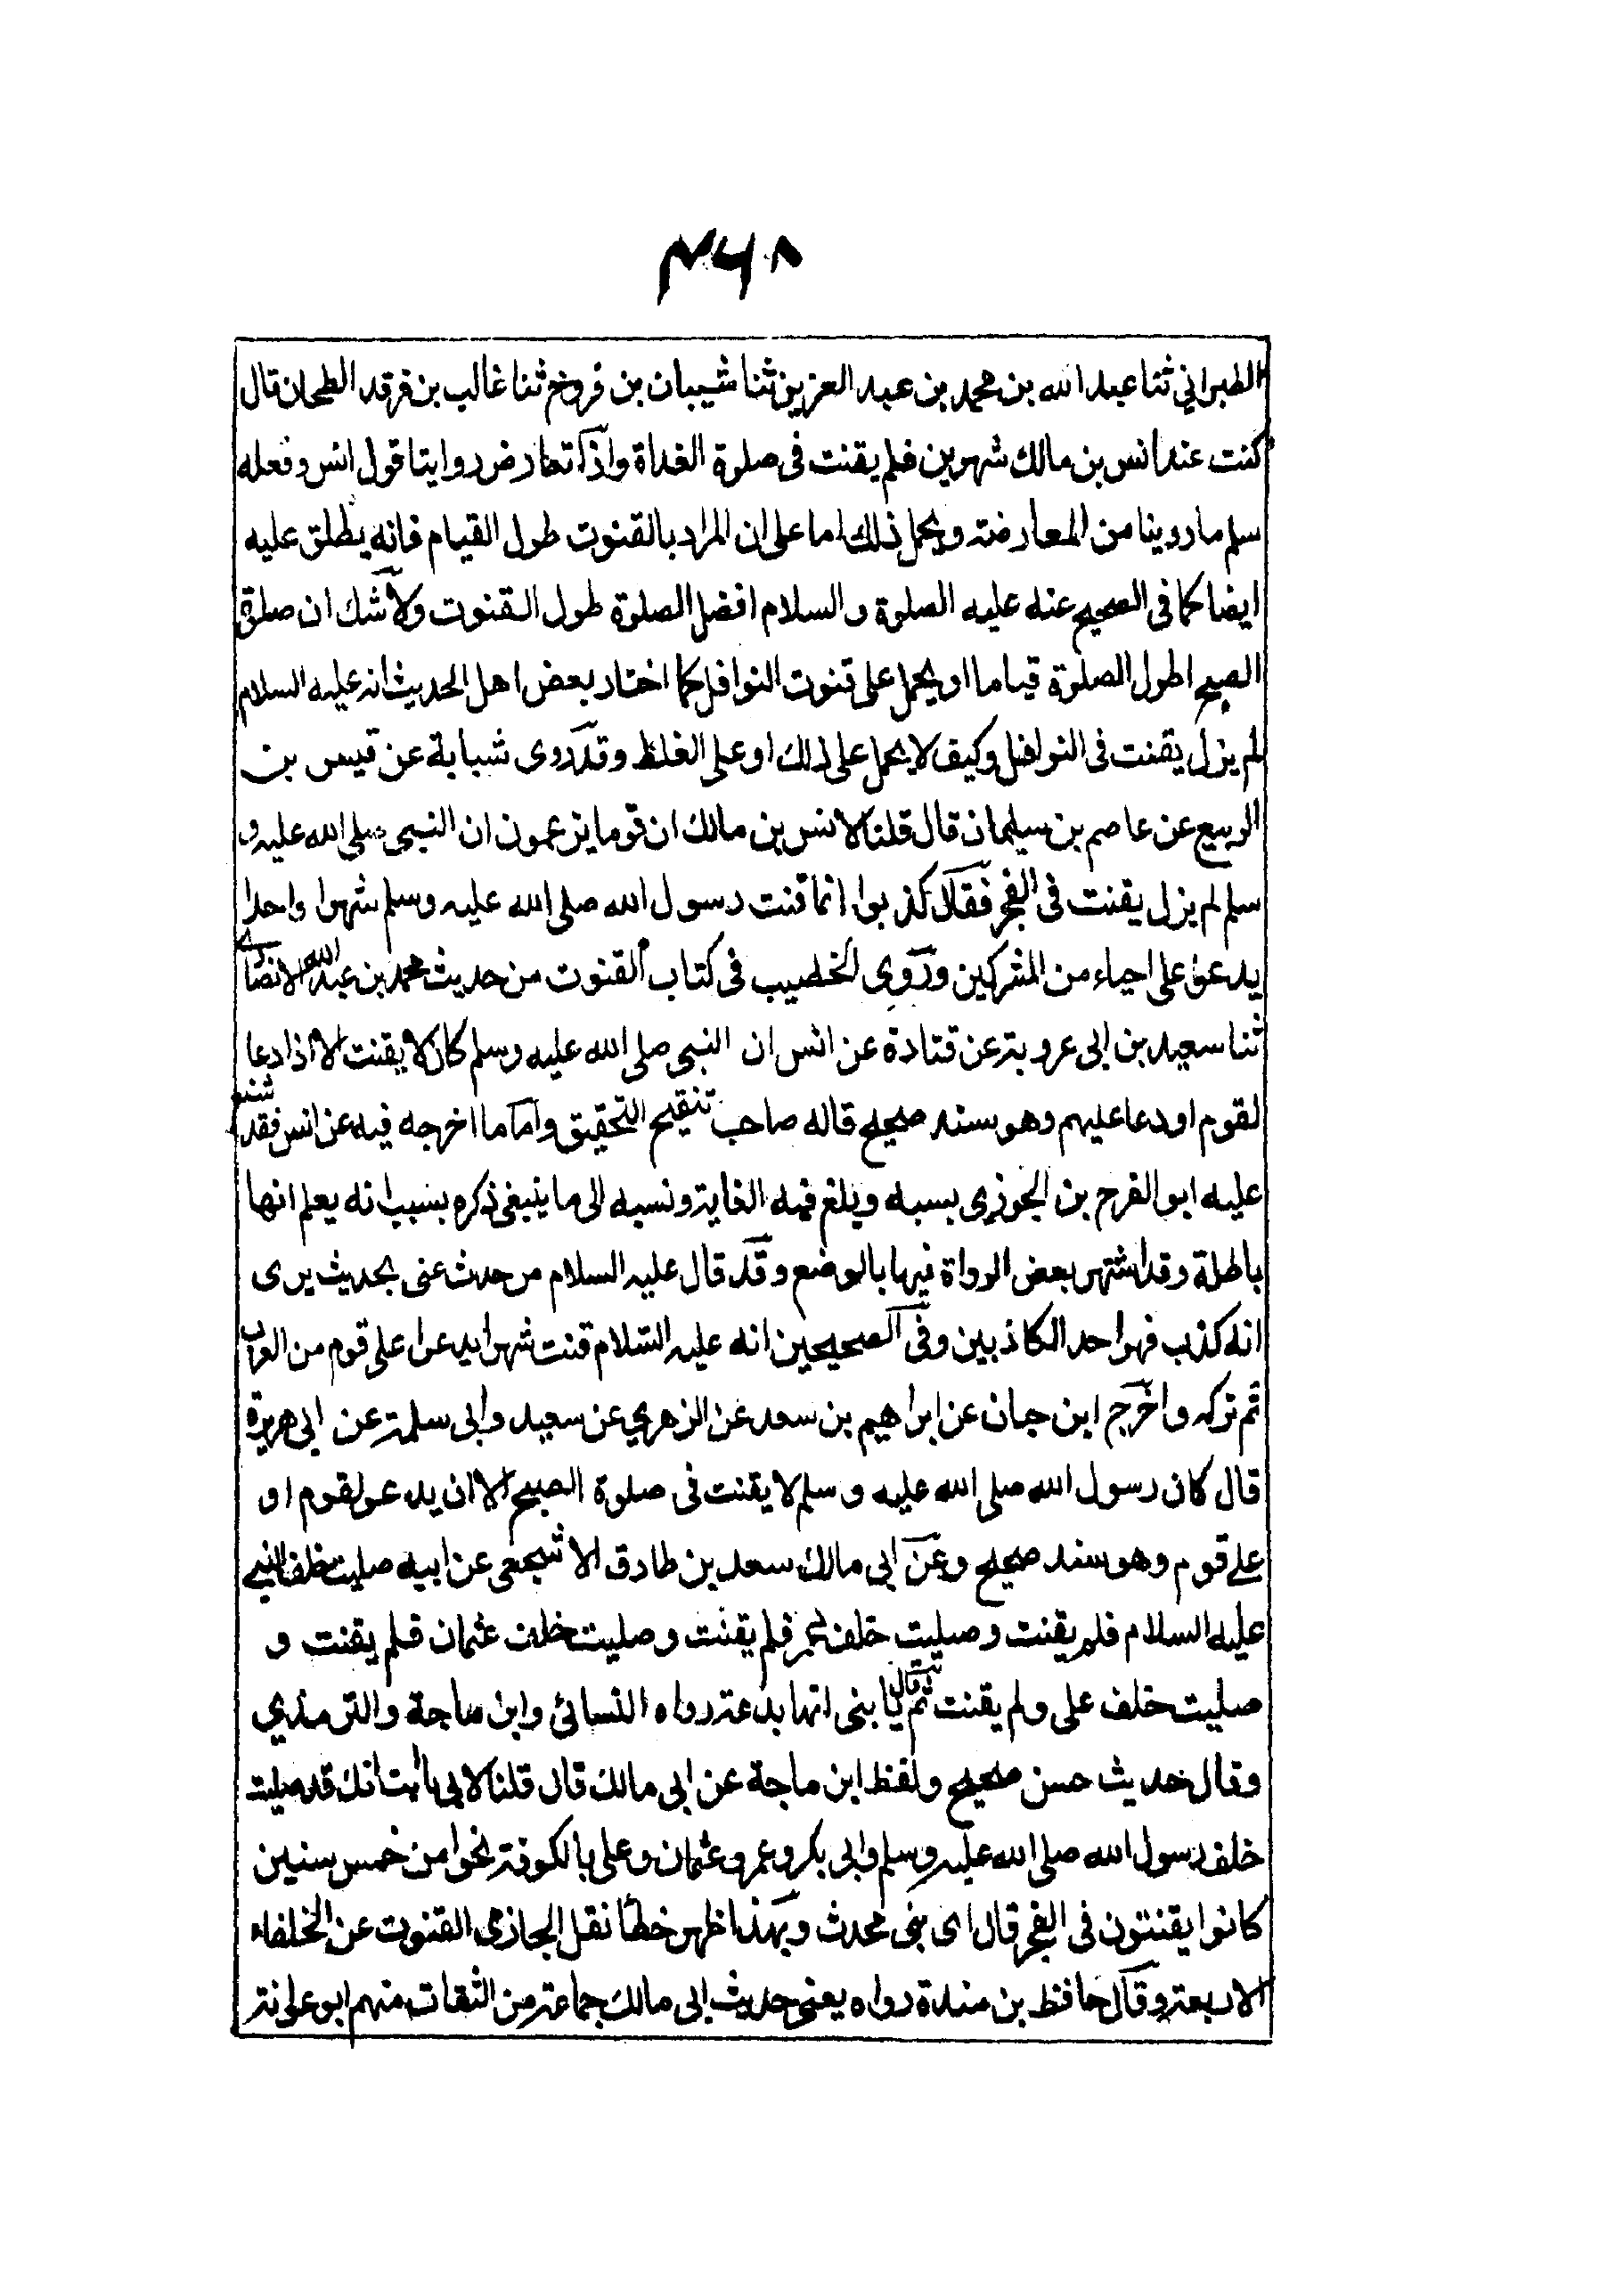 ۳۶۸
الطبراني ثنا عبد الله بن محمد بن عبد العزيز ثنا شيبان بن فروخ ثنا غالب بن فرقد الطحان قال
كنت عند انس بن مالك شهرين فلم يقنت فى صلوة الغداة واذا تعارض روايتا قول انس وفعله
سلم ما روينا من المعارضة ويحمل ذلك اما على ان المراد بالقنوت طول القيام فانه يطلق عليه
ايضا كما فى الصحيح عنه عليه الصلوة والسلام افضل الصلوة طول القنوت ولا شك ان صلوة
الصبح اطول الصلوة قياما او يحمل على قنوت النوافل كما اختار بعض اهل الحديث انه عليه السلام
لم يزل يقنت فى النوافل وكيف لا يحمل على ذلك او على الغلط وقد روى شبابة عن قيس بن
الربيع عن عاصم بن سليمان قال قلنا لانس بن مالك ان قوما يزعمون ان النبى صلى الله عليه و
سلم لم يزل يقنت فى الفجر فقال كذبوا انما قنت رسول الله صلى الله عليه وسلم شهرا واحدا
يدعو على احياء من المشركين وروى الخطيب فى كتاب القنوت من حديث محمد بن عبد الله الانصارى
ثنا سعيد بن ابى عروبة عن قتادة عن انس ان النبى صلى الله عليه وسلم كان لا يقنت الا اذا دعا
لقوم او دعا عليهم وهو سند صحيح قاله صاحب تنقيح التحقيق واما ما اخرجه فيه عن انس فقد شنع
عليه ابو الفرج بن الجوزى بسببه وبلغ فيه الغاية ونسبه الى ما ينبغى ذكره بسبب انه يعلم انها
باطلة وقد اشتهر بعض الرواة فيها بالوضع وقد قال عليه السلام من حدث عنى بحديث يرى
انه كذب فهو احد الكاذبين وفى الصحيحين انه عليه السلام قنت شهرا يدعو على قوم من العرب
ثم تركه واخرج ابن حبان عن ابراهيم بن سعد عن الزهري عن سعيد وابى سلمة عن ابى هريرة
قال كان رسول الله صلى الله عليه وسلم لا يقنت فى صلوة الصبح الا ان يدعو لقوم او
على قوم وهو سند صحيح وعن ابى مالك سعد بن طارق الاشجعى عن ابيه صليت خلف النبى
عليه السلام فلم يقنت وصليت خلف عمر فلم يقنت وصليت خلف عثمان فلم يقنت و
صليت خلف على ولم يقنت ثم قال يا بنى انها بدعة رواه النسائى وابن ماجة والترمذي
وقال حديث حسن صحيح ولفظ ابن ماجة عن ابى مالك قال قلنا لابى يا ابت انك قد صليت
خلف رسول الله صلى الله عليه وسلم وابى بكر وعمر وعثمان وعلى بالكوفة نحوا من خمس سنين
كانوا يقنتون فى الفجر قال اى بنى محدث وبهذا ظهر خطأ نقل الحازمى القنوت عن الخلفاء
الاربعة وقال حافظ بن مندة رواه يعنى حديث ابى مالك جماعة من الثقات منهم ابو عوانة